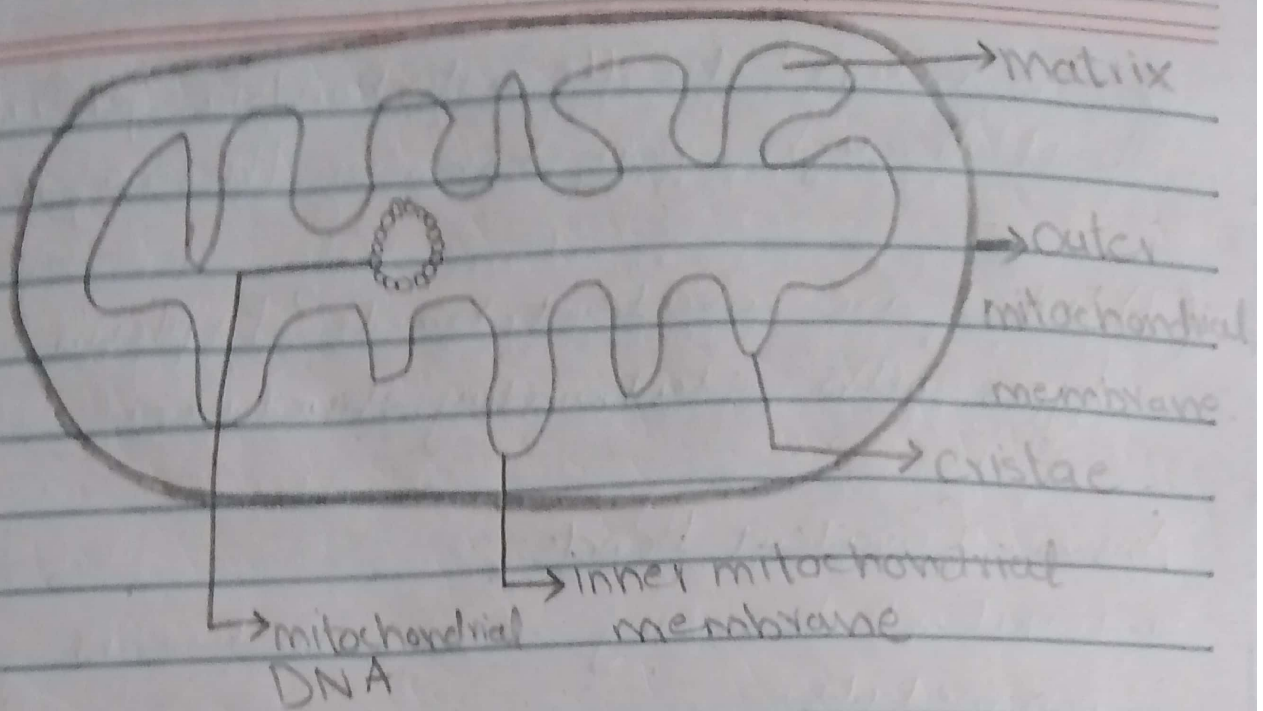 matrix
outer
mitochondrial
membrane
cristae
inner mitochondrial
membrane
mitochondrial
DNA